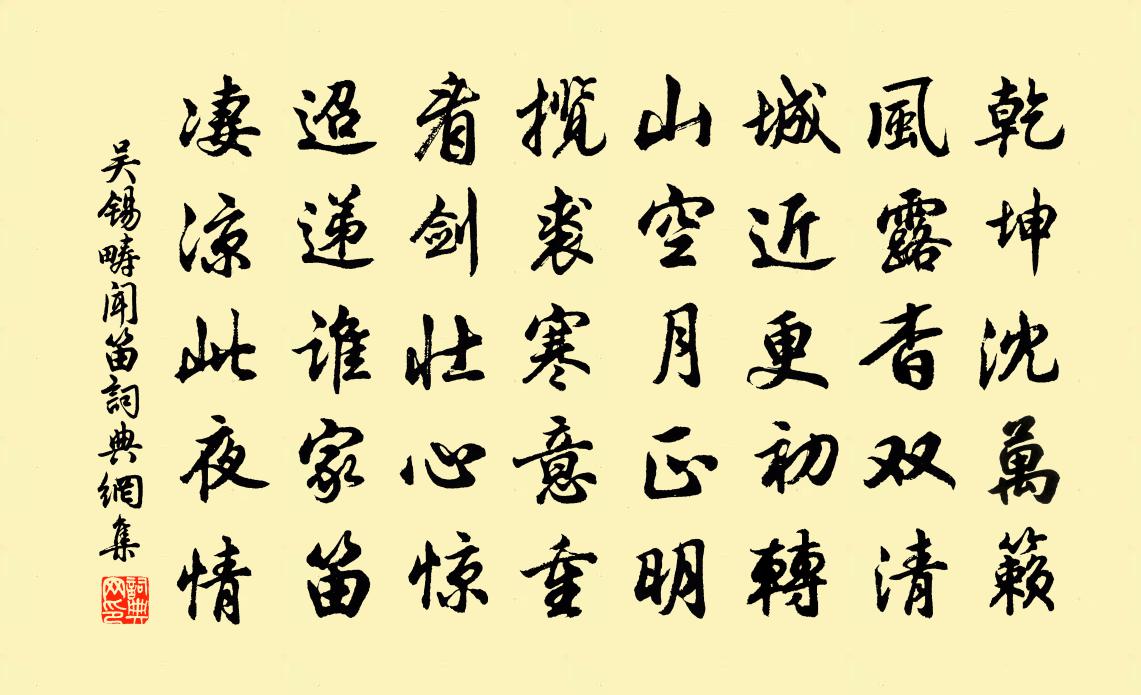 乾坤沈萬籟
風露杳双清
城近更初轉
山空月正明
攬裘寒意重
看剑壮心惊
迢递谁家笛
凄凉此夜情
吴锡畴闻笛詞典網集
詞典网印